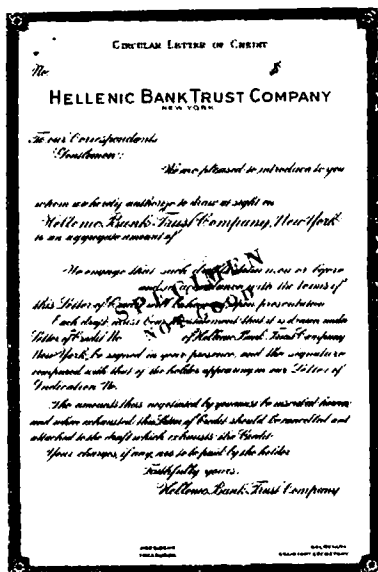 CIRCULAR LETTER OF CREDIT
No. $
HELLENIC BANK TRUST COMPANY
NEW YORK
To our Correspondents
Gentlemen:
We are pleased to introduce to you
whom we hereby authorize to draw at sight on
Hellenic Bank Trust Company, New York
in an aggregate amount of
We engage that such drafts drawn on or before
and in accordance with the terms of
this Letter of Credit will be honored upon presentation
Each draft must bear the statement that it is drawn under
Letter of Credit No. of Hellenic Bank Trust Company
New York, be signed in your presence, and the signature
compared with that of the holder appearing in our Letter of
Indication No.
The amounts thus negotiated by you must be recorded hereon
and when exhausted this Letter of Credit should be cancelled and
attached to the draft which exhausts the Credit
Your charges, if any, are to be paid by the holder
Faithfully yours,
Hellenic Bank Trust Company
SPECIMEN
NOT GOOD